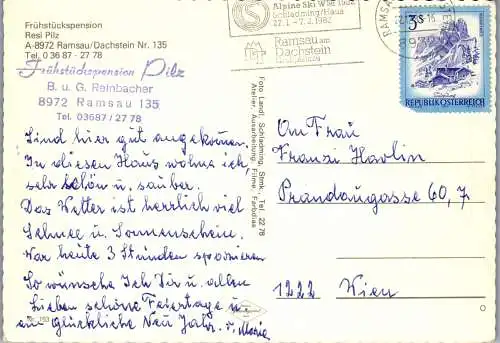 Frühstückspension
Resi Pilz
A-8972 Ramsau/Dachstein Nr. 135
Tel. 0 36 87 - 27 78
Frühstückspension Pilz
B. u. G. Reinbacher
8972 Ramsau 135
Tel. 03687/27 78
Sind hier gut angekommen.
In diesen Haus wohne ich
sehr schön u. sauber.
Das Wetter ist herrlich viel
Schnee u. Sonnenschein.
War heute 3 Stunden spazieren
So wünsche Ich Dir u. allen
Lieben schöne Feiertage u.
ein glückliche Neu Jahr. v. Marie
Foto Landl, Schladming, Stmk., Tel. 22 78
Atelier, Ausarbeitung, Filme, Farbdias
Alpine Ski WM 1982
Schladming/Haus
27.1. - 7.2. 1982
Ramsau am
Dachstein
RAMSAU
S3
REPUBLIK ÖSTERREICH
An Frau
Franzi Havlin
Prandaugasse 60, 7
1222 Wien